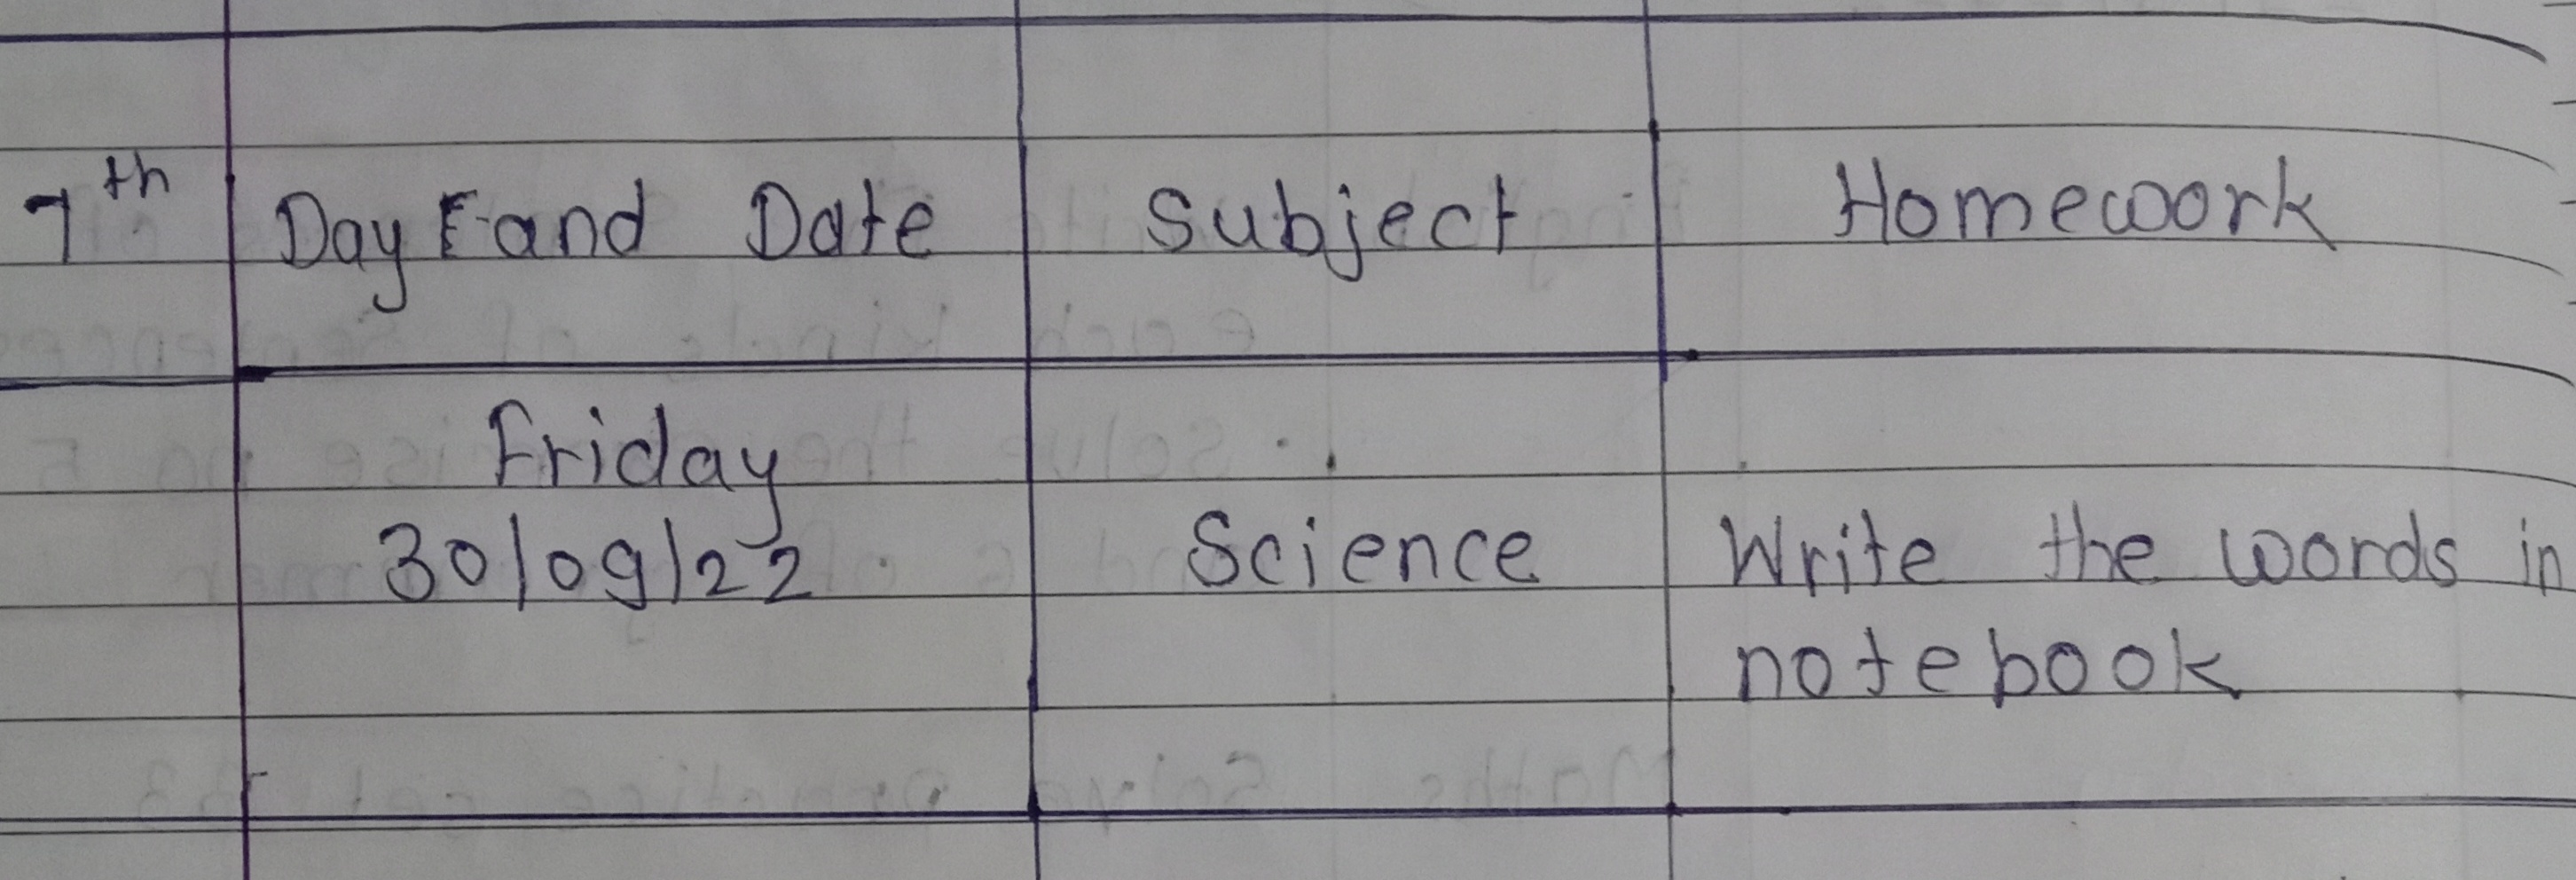 7th Day and Date Subject Homework
Friday
30/09/22 Science Write the words in
notebook